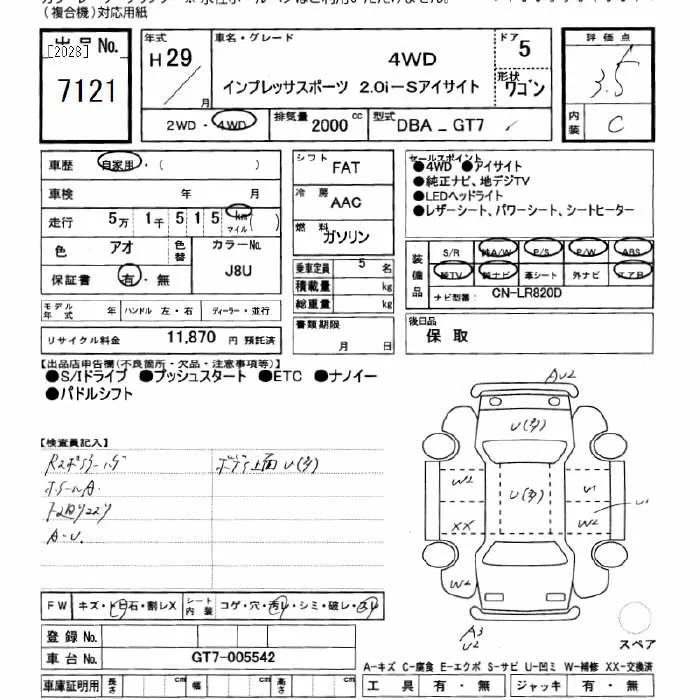 (複合機)対応用紙
出品No. [2028]
7121
年式 H29 月
車名・グレード
4WD
インプレッサスポーツ 2.0i-Sアイサイト
ドア 5
形状 ワゴン
評価点
3.5
内装 C
2WD・4WD
排気量 2000 cc
型式 DBA _ GT7
車歴 自家用・( )
車検 年 月
走行 5万 1千 5 1 5 km マイル ( )
色 アオ 色替
カラーNo. J8U
保証書 有・無
モデル年式 年 ハンドル 左・右 ディーラー・並行
リサイクル料金 11,870 円 預託済
シフト FAT
冷房 AAC
燃料 ガソリン
乗車定員 5 名
積載量 kg
総重量 kg
書類期限
月 日
セールスポイント
●4WD ●アイサイト
●純正ナビ、地デジTV
●LEDヘッドライト
●レザーシート、パワーシート、シートヒーター
装備品
S/R 純A/W P/S P/W ABS
純TV 純ナビ 革シート 外ナビ エアB
ナビ型番: CN-LR820D
後日品
保 取
【出品店申告欄(不良箇所・欠品・注意事項等)】
●S/Iドライブ ●プッシュスタート ●ETC ●ナノイー
●パドルシフト
【検査員記入】
ボデー上面 U(多)
ホイールA
A・U
AU2
U(多)
U(多)
W2
XX
W2
U1
W2
U1
A3
U2
スペア
FW キズ・トビ石・割レX
シート内装 コゲ・穴・汚レ・シミ・破レ・スレ
登録 No.
車台 No. GT7-005542
車庫証明用 長さ cm 幅 cm 高さ cm
A-キズ C-腐食 E-エクボ S-サビ U-凹ミ W-補修 XX-交換済
工具 有・無 ジャッキ 有・無